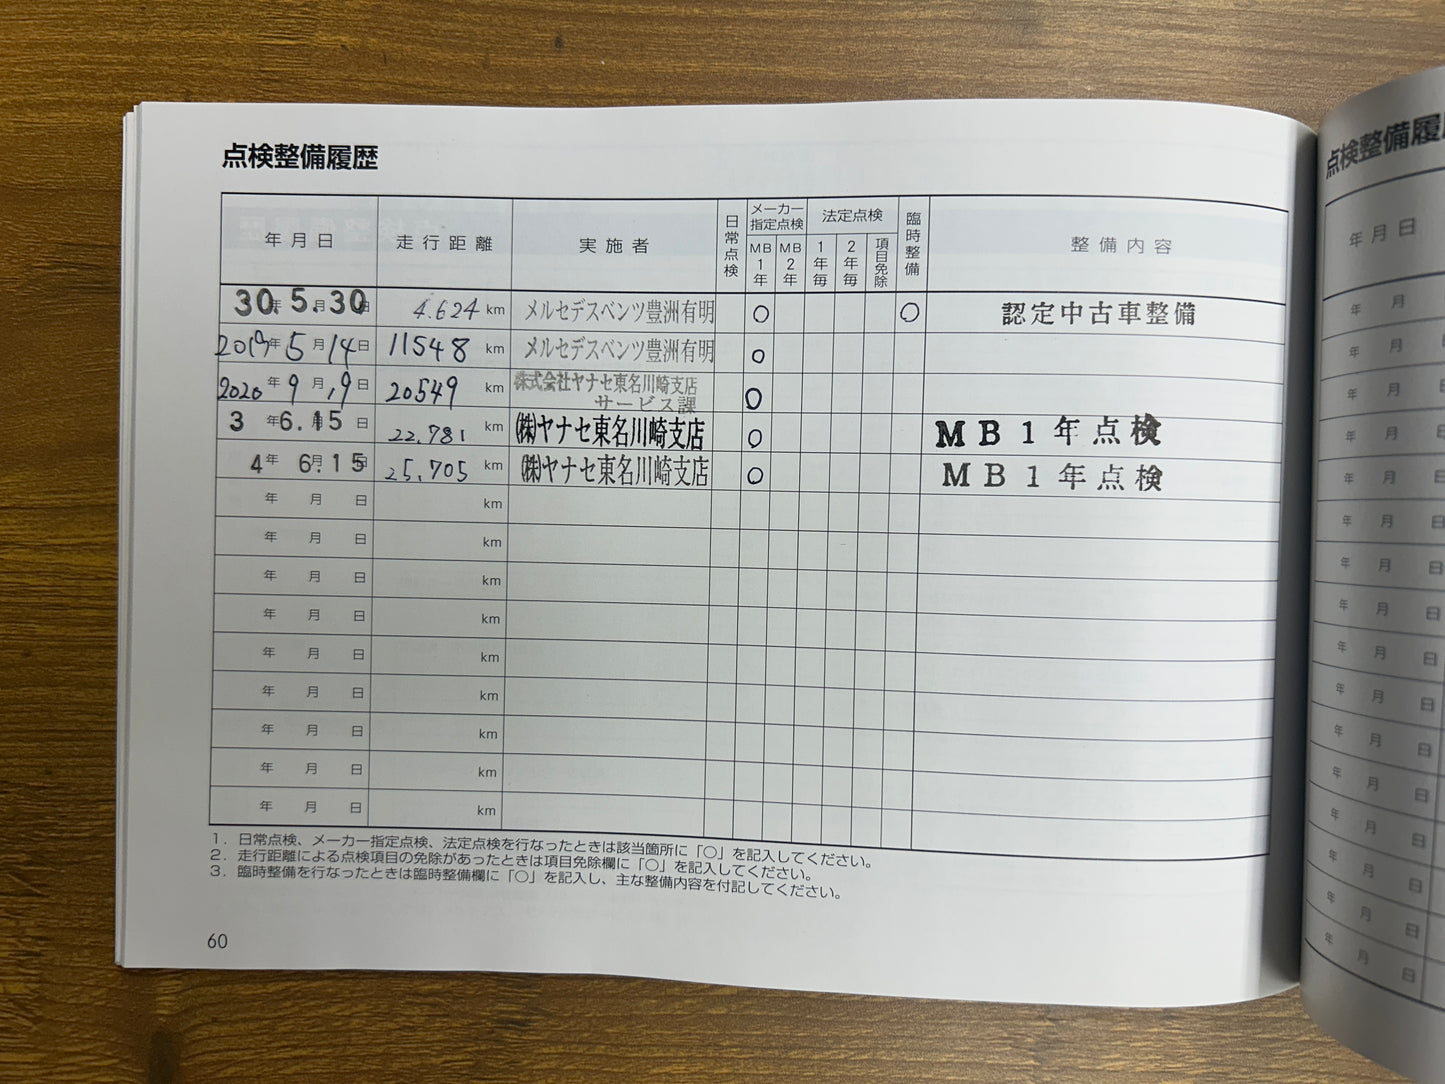 点検整備履歴
年月日 走行距離 実施者 日常点検 メーカー指定点検 法定点検 臨時整備 整備内容
MB1年 MB2年 1年毎 2年毎 項目免除
30年 5.月 30日 4.624 km メルセデスベンツ豊洲有明 ○ ○ 認定中古車整備
2019年 5月 14日 11548 km メルセデスベンツ豊洲有明 ○
2020年 9月 19日 20549 km 株式会社ヤナセ東名川崎支店
サービス課 ○
3年 6.月 15日 22.781 km ㈱ヤナセ東名川崎支店 ○ MB1年点検
4年 6.月 15日 25.705 km ㈱ヤナセ東名川崎支店 ○ MB1年点検
年 月 日 km
年 月 日 km
年 月 日 km
年 月 日 km
年 月 日 km
年 月 日 km
年 月 日 km
年 月 日 km
年 月 日 km
1．日常点検、メーカー指定点検、法定点検を行なったときは該当箇所に「○」を記入してください。
2．走行距離による点検項目の免除があったときは項目免除欄に「○」を記入してください。
3．臨時整備を行なったときは臨時整備欄に「○」を記入し、主な整備内容を付記してください。
60
点検整備履
年月日
年 月
年 月 日
年 月 日
年 月 日
年 月 日
年 月 日
年 月 日
年 月 日
年 月 日
年 月 日
年 月 日
年 月 日
年 月 日
年 月 日
年 月 日